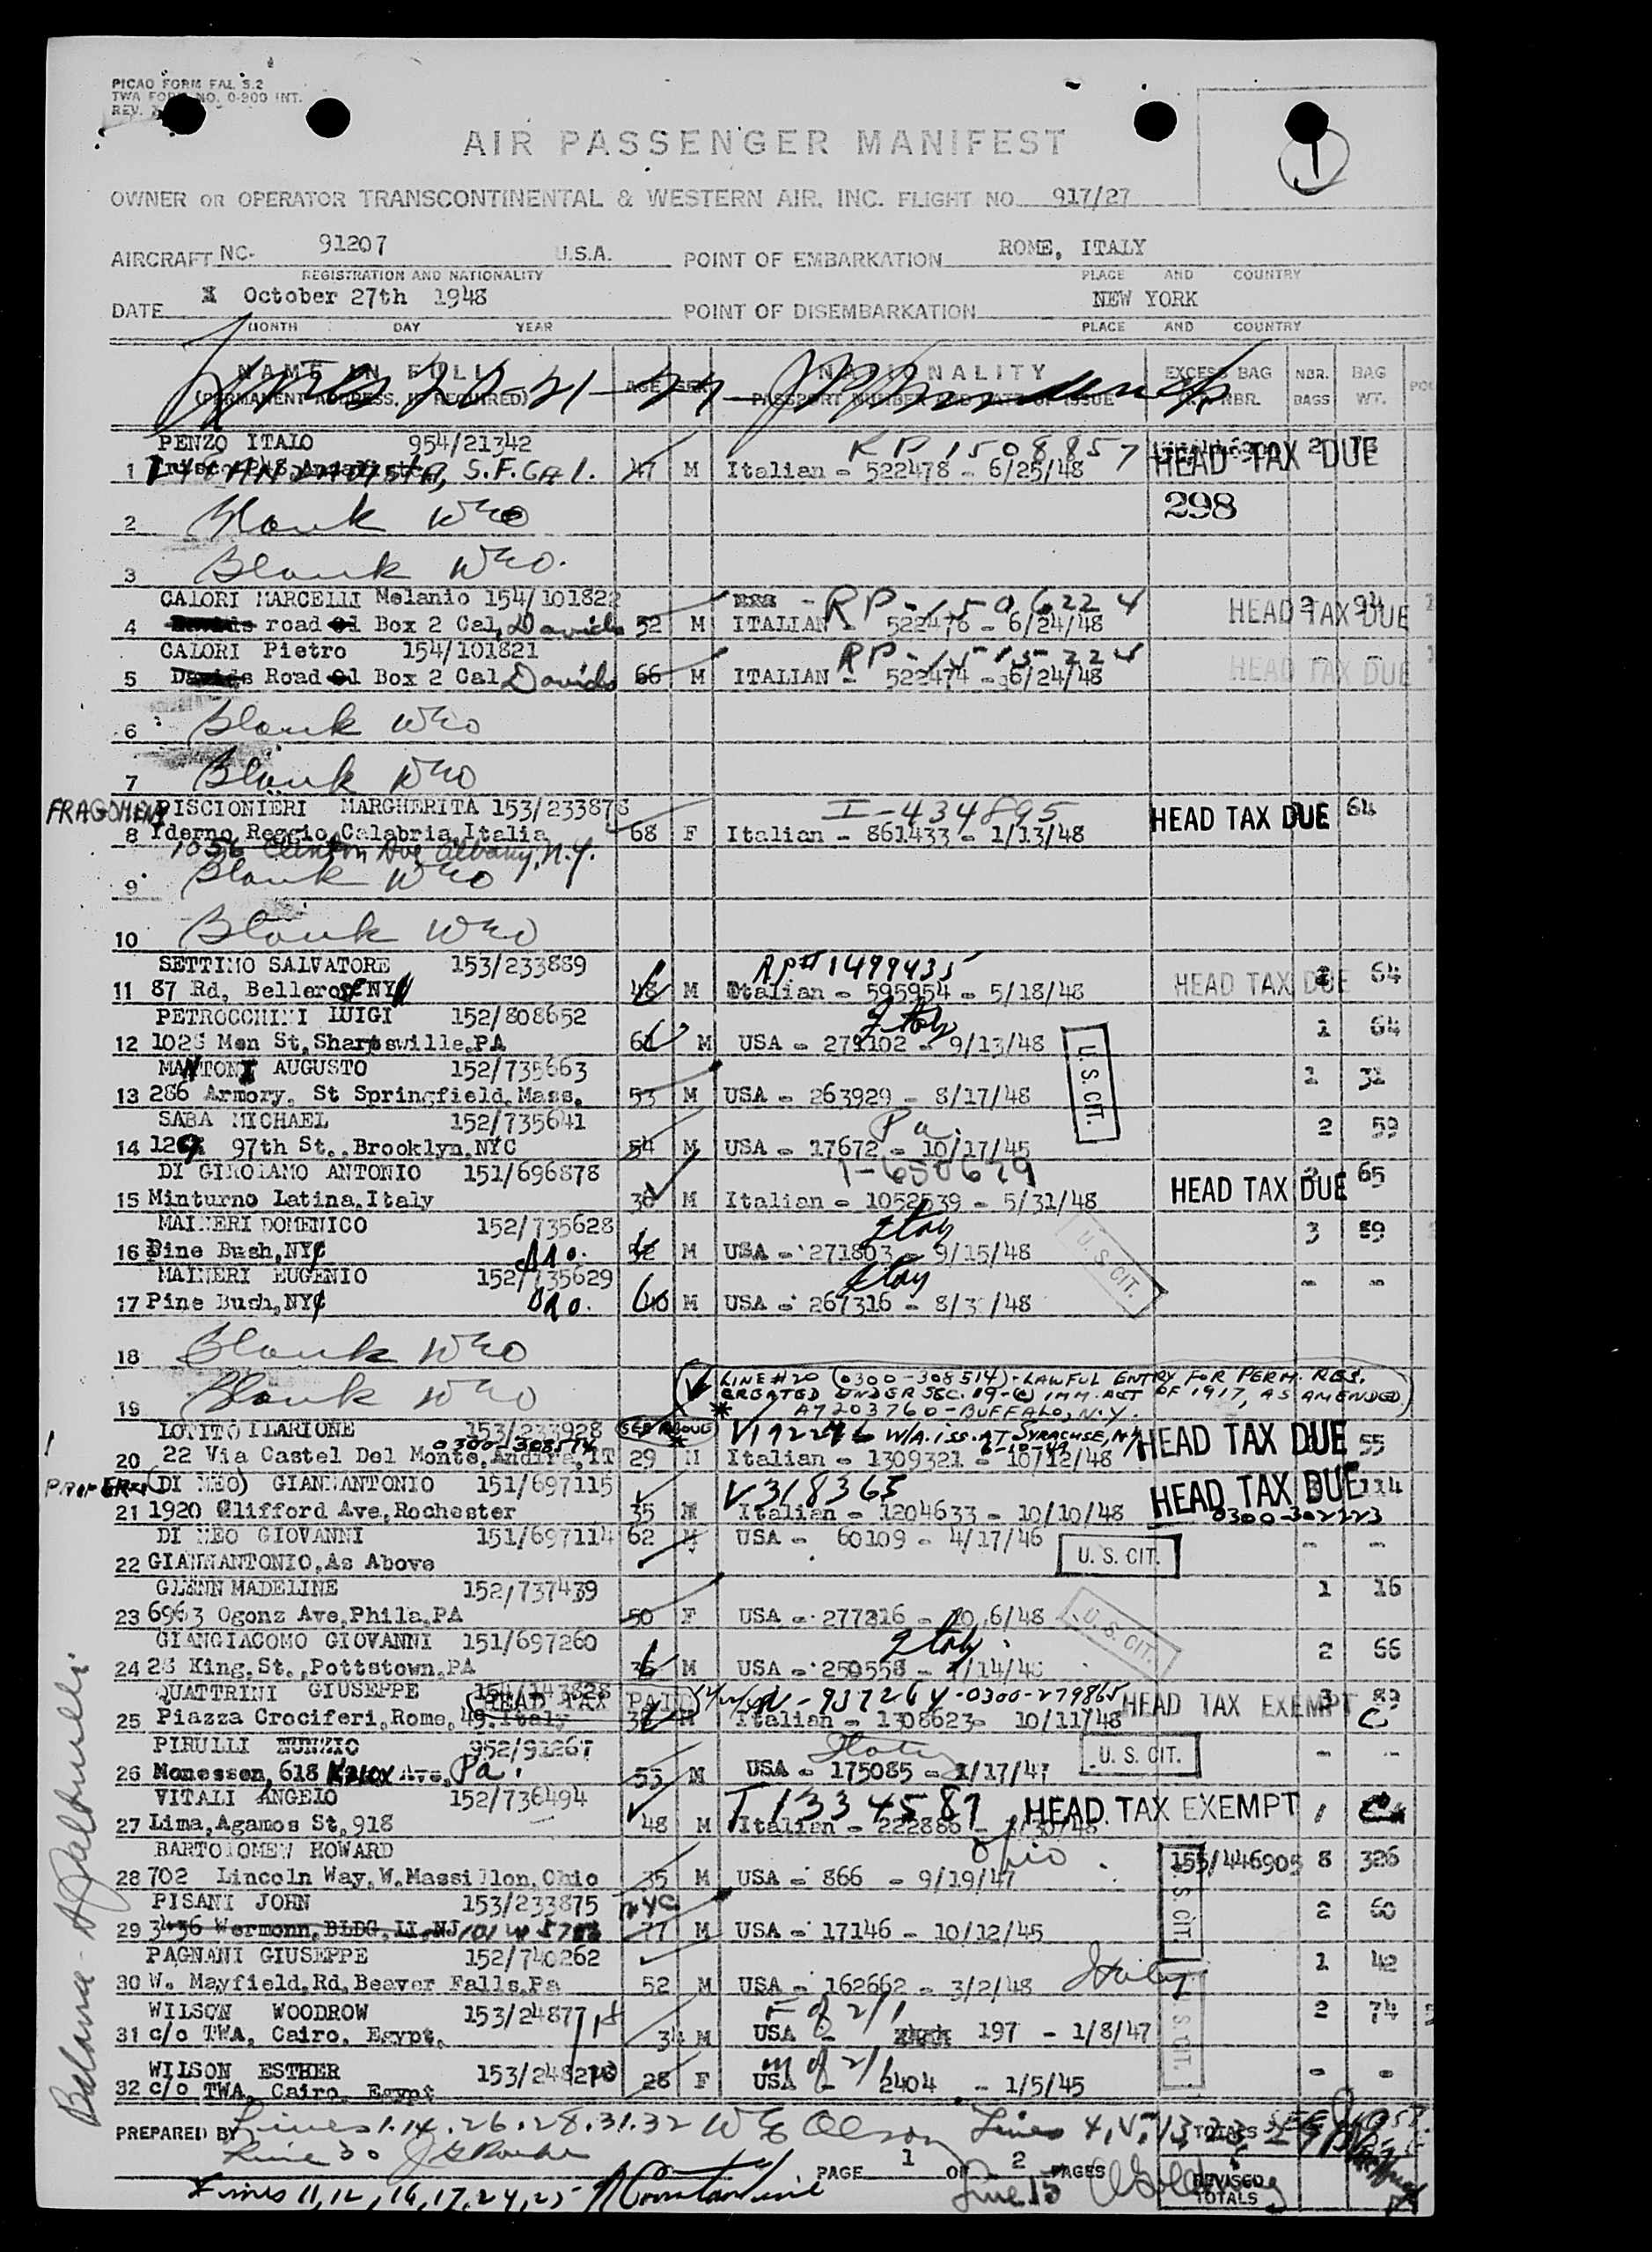 PICAO FORM FAL S.2
TWA FORM NO. 0-900 INT.
REV.
1
AIR PASSENGER MANIFEST
OWNER OR OPERATOR TRANSCONTINENTAL & WESTERN AIR, INC. FLIGHT NO. 917/27
AIRCRAFT NC. 91207 U.S.A. POINT OF EMBARKATION ROME, ITALY
REGISTRATION AND NATIONALITY PLACE AND COUNTRY
DATE October 27th 1948 POINT OF DISEMBARKATION NEW YORK
MONTH DAY YEAR PLACE AND COUNTRY
NAME IN FULL AGE SEX NATIONALITY EXCESS BAG NBR. BAG
(PERMANENT ADDRESS, IF REQUIRED) PASSPORT NUMBER AND DATE OF ISSUE NBR. BAGS WT.
PENZO ITALO 954/21342 RP 1508857 HEAD TAX DUE
1 S.F. Cal. 47 M Italian - 522478 - 6/25/48
298
2 Blank WEO
3 Blank WEO.
CALORI MARCELLI Melanio 154/101822 RP-1506224 HEAD TAX DUE
4 road Box 2 Cal, Davids 52 M ITALIAN - 522476 - 6/24/48
CALORI Pietro 154/101821 RP-1515224
5 Davids Road Box 2 Cal Davids 66 M ITALIAN - 522474 - 6/24/48 HEAD TAX DUE
6 Blank WEO
7 Blank WEO
FRAGOMENI PISCIONIERI MARGHERITA 153/233878 I-434895 HEAD TAX DUE 64
8 Yderno Reggio Calabria Italia 68 F Italian - 861433 - 1/13/48
1056 Clinton Ave Albany, N.Y.
9 Blank WEO
10 Blank WEO
SETTINO SALVATORE 153/233889 RP# 1499435 HEAD TAX DUE 64
11 87 Rd, Bellerose NY 48 M Italian - 595954 - 5/18/48
PETROCCHINI LUIGI 152/808652 Italy 1 64
12 1025 Men St, Sharpswille, PA M USA - 271102 - 9/13/48 U.S. CIT.
MANTONI AUGUSTO 152/735663 1 31
13 286 Armory, St Springfield, Mass. 53 M USA - 263929 - 8/17/48
SABA MICHAEL 152/735641 Pa. 2 59
14 129 97th St., Brooklyn, NYC 54 M USA - 17672 - 10/17/45
DI GIROLAMO ANTONIO 151/696878 I-650679 HEAD TAX DUE 65
15 Minturno Latina, Italy 36 M Italian - 1052539 - 5/31/48
MAINERI DOMENICO 152/735628 Italy 3 59
16 Pine Bush, NY 52 M USA - 271803 - 9/15/48 U.S. CIT.
MAINERI EUGENIO 152/735629 Italy - -
17 Pine Bush, NY M USA - 267316 - 8/3 /48
18 Blank WEO
19 Blank WEO
LINE #20 (0300-308514)-LAWFUL ENTRY FOR PERM. RES.
CREATED UNDER SEC. 19-(c) IMM. ACT OF 1917, AS AMENDED
A7203760-BUFFALO, N.Y.
LOTITO ILARIONE 153/233928 SEE ABOVE V192296 W/A. iss. AT SYRACUSE, NY HEAD TAX DUE 55
0300-308514
20 22 Via Castel Del Monte, Andira, IT 29 M Italian - 1309321 - 10/12/48
(DI MEO) GIANNANTONIO 151/697115 V318365 HEAD TAX DUE 114
21 1920 Clifford Ave, Rochester 35 M Italian - 1204633 - 10/10/48 0300-302223
DI MEO GIOVANNI 151/697114 62 M USA - 60109 - 4/17/46 - -
22 GIANNANTONIO, As Above U.S. CIT.
GLENN MADELINE 152/737439 1 16
23 6963 Ogonz Ave, Phila, PA 50 F USA - 277316 - 10/6/48 U.S. CIT.
GIANGIACOMO GIOVANNI 151/697260 Italy 2 66
24 23 King, St., Pottstown, PA 36 M USA - 250558 - /14/48
QUATTRINI GIUSEPPE 154/143828 HEAD TAX PAID 937264-0300-279865 HEAD TAX EXEMPT 3 89
25 Piazza Crociferi, Rome, 49, Italy M Italian - 1308623 - 10/11/48
PIRULLI NUNZIO 952/91267 Italy - -
26 Monessen, 618 Knox Ave, Pa. 55 M USA - 175085 - 1/17/47 U.S. CIT.
VITALI ANGELO 152/736494 T1334587 HEAD TAX EXEMPT 1
27 Lima, Agamos St, 918 48 M Italian - 222886 - /30/48
BARTOLOMEW HOWARD Ohio 155/446905 8 326
28 702 Lincoln Way, W. Massillon, Ohio 35 M USA - 866 - 9/19/47 U.S. CIT.
PISANI JOHN 153/233875 NYC 2 60
29 3436 Wermonn, BLDG, LI, NJ 77 M USA - 17146 - 10/12/45
PAGNANI GIUSEPPE 152/740262 Italy 1 42
30 W. Mayfield, Rd, Beaver Falls, Pa 52 M USA - 162662 - 3/2/48
WILSON WOODROW 153/24877 F of 2/1 2 74
31 c/o TWA, Cairo, Egypt, 34 M USA - 197 - 1/8/47 U.S. CIT.
WILSON ESTHER 153/248270 M of 2/1 - -
32 c/o TWA, Cairo, Egypt 28 F USA - 2404 - 1/5/45
PREPARED BY Lines 1.14.26.28.31.32 W E Olson Lines 4, 5, 13, 23, TOTALS
Line 30
PAGE 1 OF 2 PAGES REVISED TOTALS
Lines 11, 12, 16, 17, 24, 25 Line 15